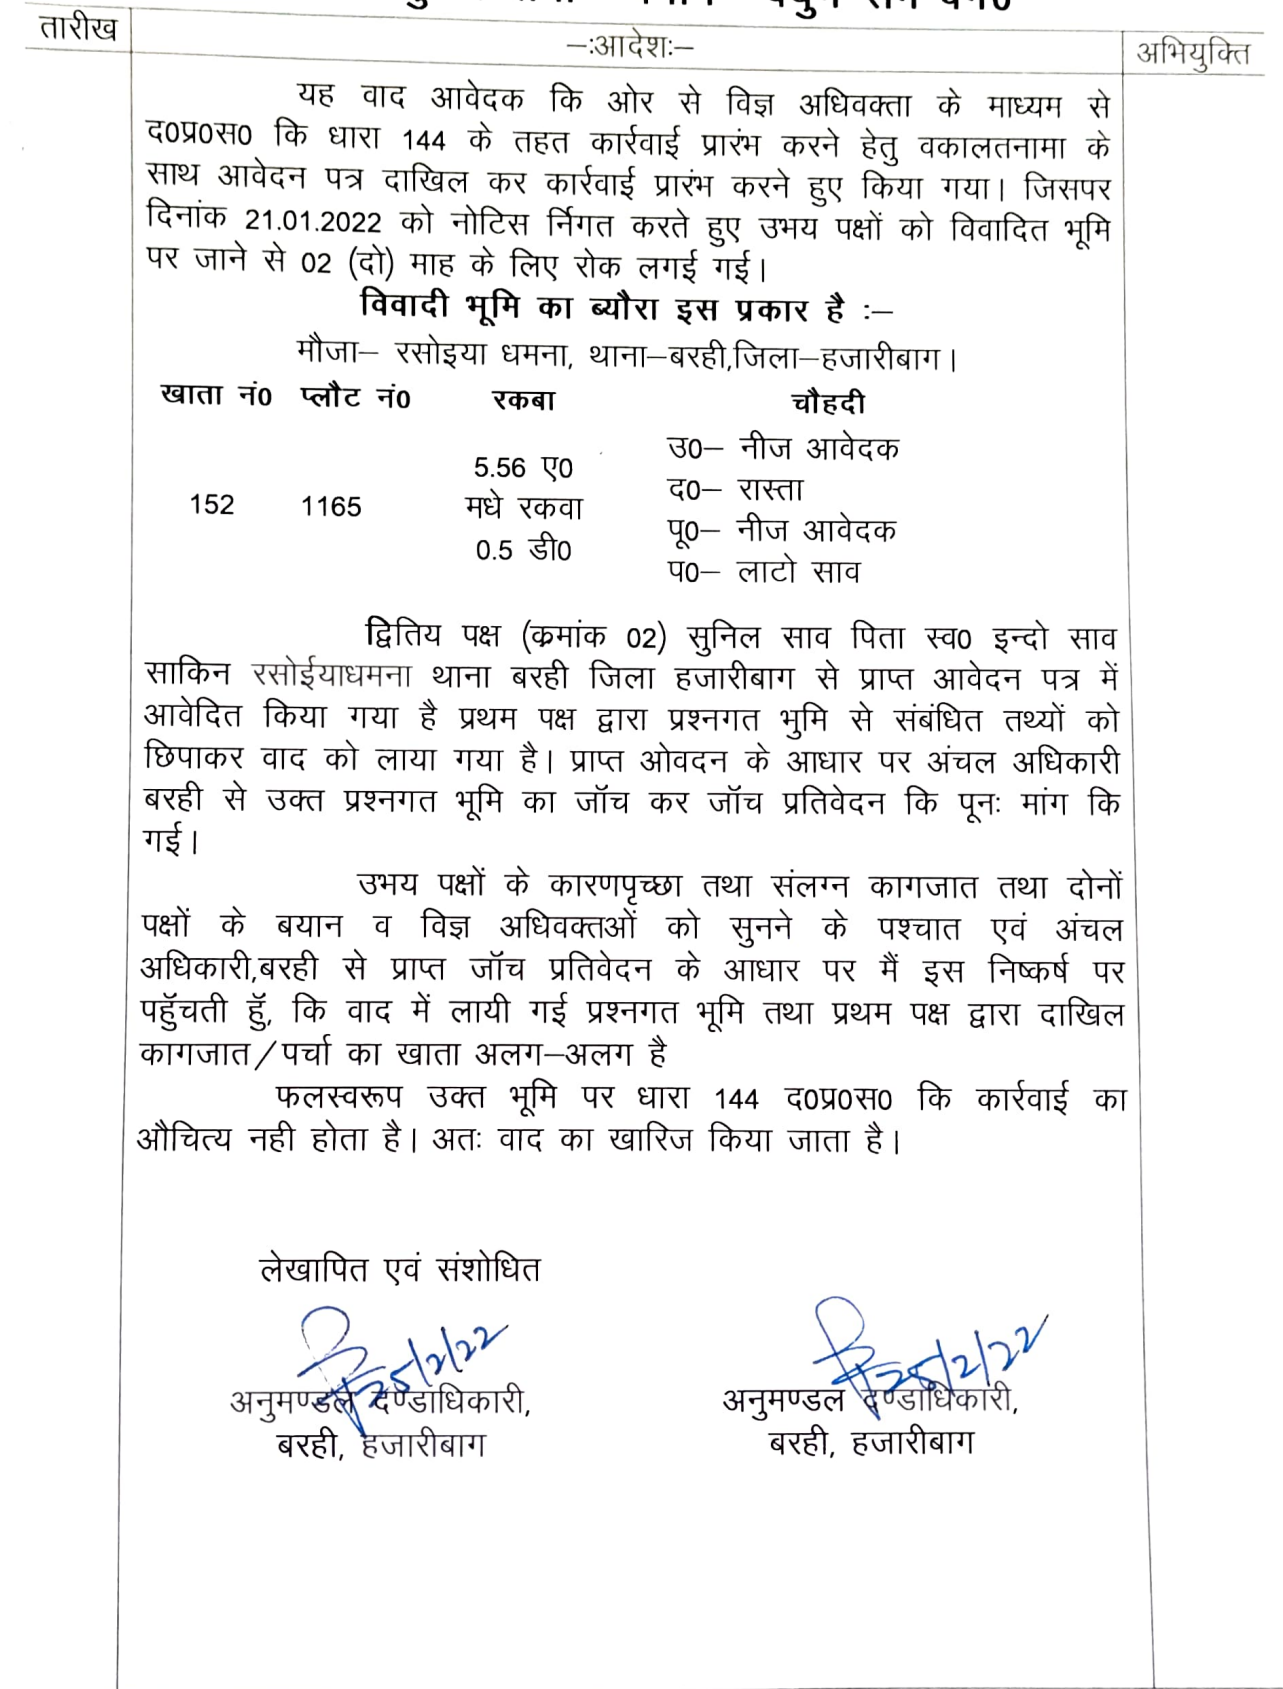 तारीख
–:आदेशः–
अभियुक्ति
यह वाद आवेदक कि ओर से विज्ञ अधिवक्ता के माध्यम से
द0प्र0स0 कि धारा 144 के तहत कार्रवाई प्रारंभ करने हेतु वकालतनामा के
साथ आवेदन पत्र दाखिल कर कार्रवाई प्रारंभ करने हुए किया गया। जिसपर
दिनांक 21.01.2022 को नोटिस र्निगत करते हुए उभय पक्षों को विवादित भूमि
पर जाने से 02 (दो) माह के लिए रोक लगई गई।
विवादी भूमि का ब्यौरा इस प्रकार है :–
मौजा– रसोइया धमना, थाना–बरही,जिला–हजारीबाग।
खाता नं0 प्लौट नं0 रकबा चौहदी
उ0– नीज आवेदक
5.56 ए0
द0– रास्ता
152 1165 मधे रकवा
पू0– नीज आवेदक
0.5 डी0
प0– लाटो साव
द्वितिय पक्ष (क्रमांक 02) सुनिल साव पिता स्व0 इन्दो साव
साकिन रसोईयाधमना थाना बरही जिला हजारीबाग से प्राप्त आवेदन पत्र में
आवेदित किया गया है प्रथम पक्ष द्वारा प्रश्नगत भुमि से संबंधित तथ्यों को
छिपाकर वाद को लाया गया है। प्राप्त ओवदन के आधार पर अंचल अधिकारी
बरही से उक्त प्रश्नगत भूमि का जॉच कर जॉच प्रतिवेदन कि पूनः मांग कि
गई।
उभय पक्षों के कारणपृच्छा तथा संलग्न कागजात तथा दोनों
पक्षों के बयान व विज्ञ अधिवक्तओं को सुनने के पश्चात एवं अंचल
अधिकारी,बरही से प्राप्त जॉच प्रतिवेदन के आधार पर मैं इस निष्कर्ष पर
पहुॅचती हुॅ, कि वाद में लायी गई प्रश्नगत भूमि तथा प्रथम पक्ष द्वारा दाखिल
कागजात/पर्चा का खाता अलग–अलग है
फलस्वरूप उक्त भूमि पर धारा 144 द0प्र0स0 कि कार्रवाई का
औचित्य नही होता है। अतः वाद का खारिज किया जाता है।
लेखापित एवं संशोधित
25/2/22 25/2/22
अनुमण्डल दण्डाधिकारी, अनुमण्डल दण्डाधिकारी,
बरही, हजारीबाग बरही, हजारीबाग